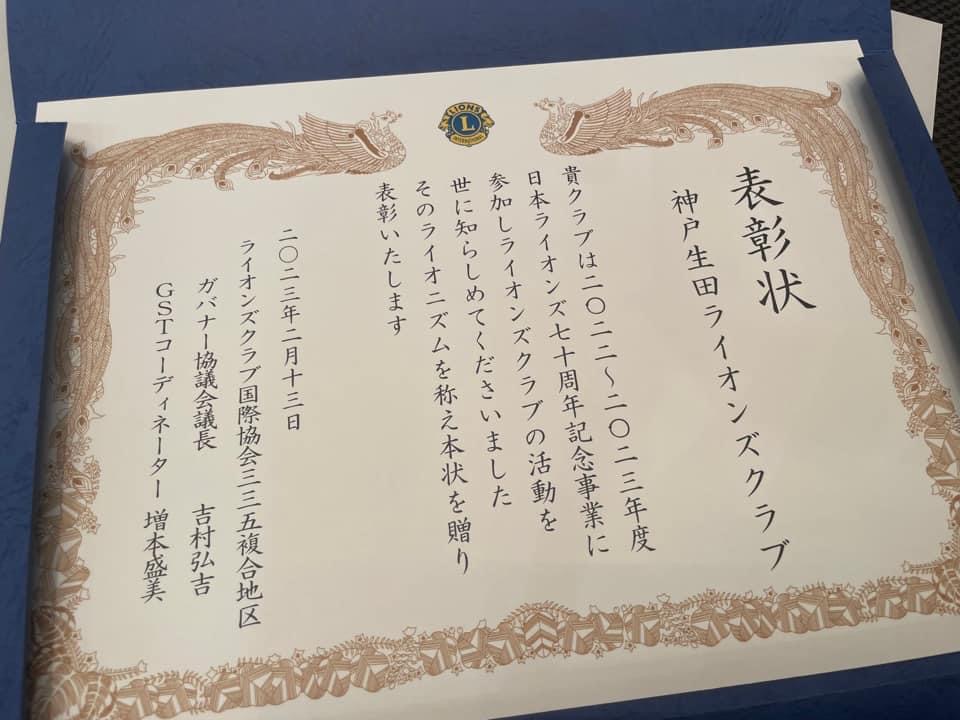 LIONS
L
INTERNATIONAL
表彰状
神戸生田ライオンズクラブ
貴クラブは二〇二二～二〇二三年度
日本ライオンズ七十周年記念事業に
参加しライオンズクラブの活動を
世に知らしめてくださいました
そのライオニズムを称え本状を贈り
表彰いたします
二〇二三年二月十三日
ライオンズクラブ国際協会三三五複合地区
ガバナー協議会議長 吉村弘吉
GSTコーディネーター 増本盛美